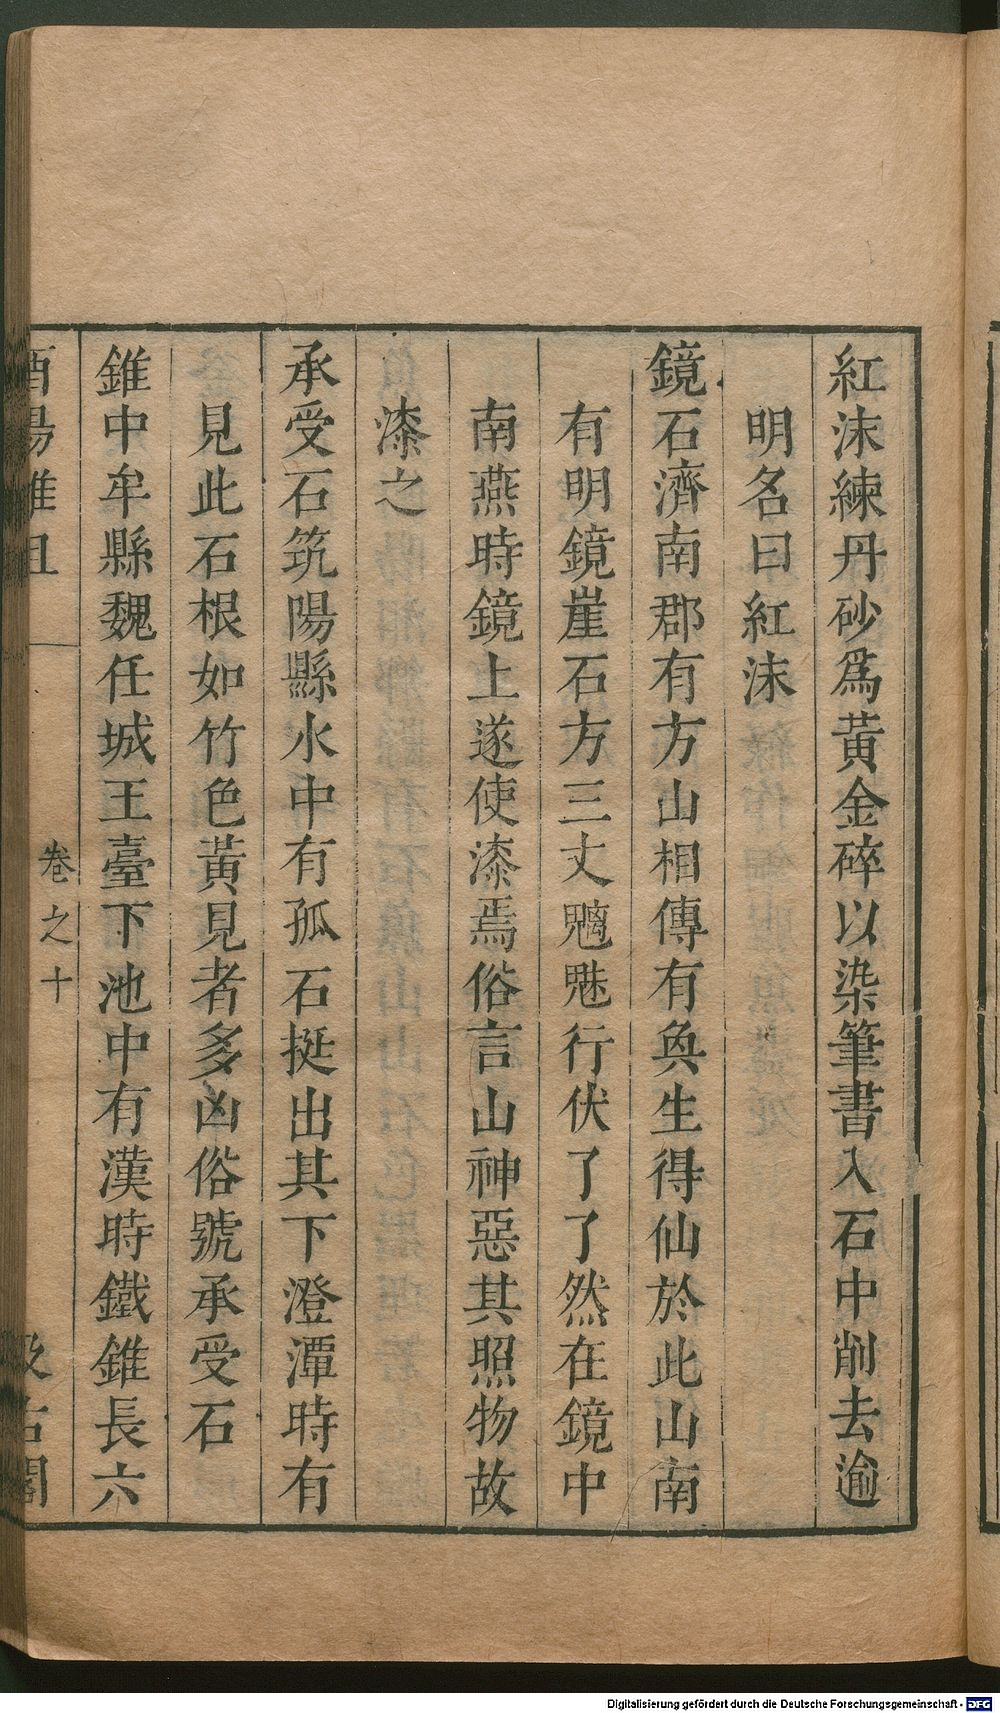 紅沫練丹砂爲黃金碎以染筆書入石中削去逾
明名曰紅沫
鏡石濟南郡有方山相傳有奐生得仙於此山南
有明鏡崖石方三丈魍魎行伏了了然在鏡中
南燕時鏡上遂使漆焉俗言山神惡其照物故
漆之
承受石筑陽縣水中有孤石挺出其下澄潭時有
見此石根如竹色黃見者多凶俗號承受石
錐中牟縣魏任城王臺下池中有漢時鐵錐長六
酉陽雜俎
卷之十
汲古閣
Digitalisierung gefördert durch die Deutsche Forschungsgemeinschaft - DFG